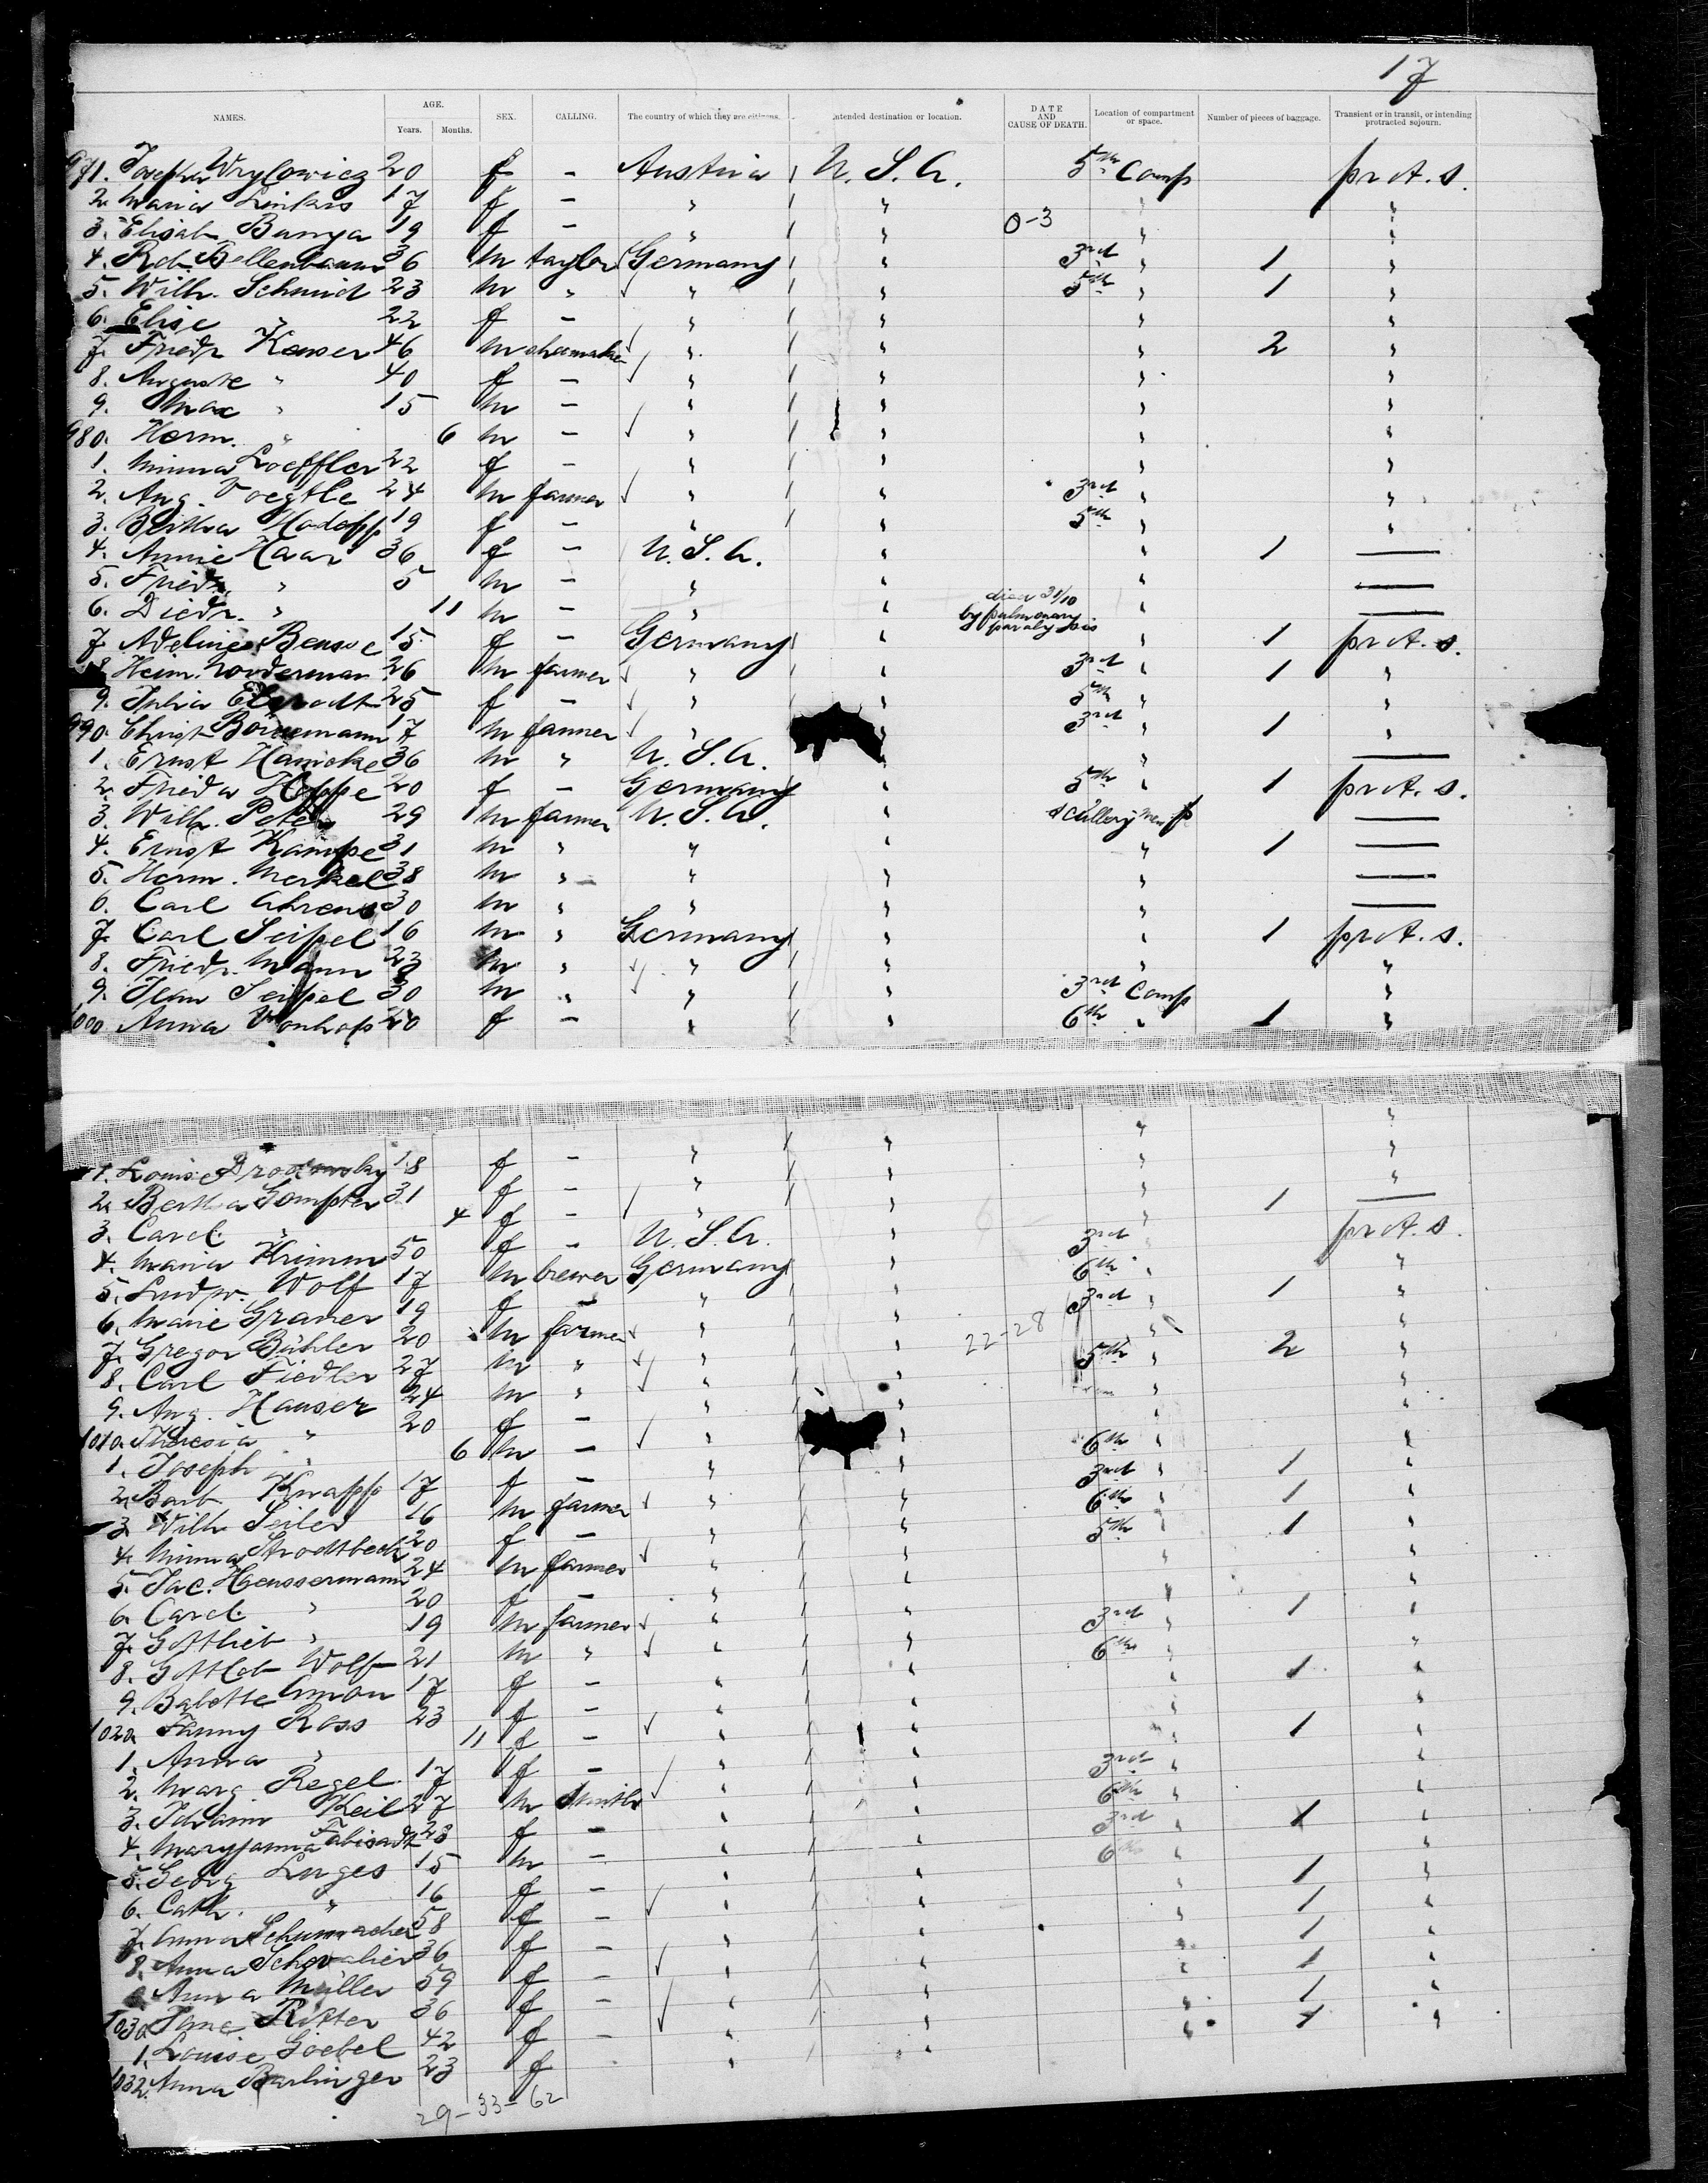 17
NAMES. AGE. Years. Months. SEX. CALLING. The country of which they are citizens. Intended destination or location. DATE AND CAUSE OF DEATH. Location of compartment or space. Number of pieces of baggage. Transient or in transit, or intending protracted sojourn.
971. 20 f - Austria U. S. A. 5th Comp pr A. s.
2. Maria 17 f - " " " "
3. Elisab. Bunya 19 f - " " 0-3 " "
4. Rob. Tellenbaum 36 m taylor Germany " 3rd " 1 "
5. Wilh. Schmid 23 m " " " 5th " 1 "
6. Elise " 22 f - " " " "
7. Friedr Kaeser 46 m shoemaker " " " 2 "
8. Auguste " 40 f - " " " "
9. Max " 15 m - " " " "
980. Herm. " 6 m - " " " "
1. Minna Loeffler 22 f - " " " "
2. Aug. Voegtle 24 m farmer " " 3rd " "
3. Bertha Hodapp 19 f - " " 5th " "
4. Annie Haar 36 f - U. S. A. " " 1 —
5. Friedr. " 5 m - " " " —
6. Diedr. " 11 m - " " died 31/10 by pulmonary paralysis " —
7. Adeline Bensse 15 f - Germany " " 1 pr A. s.
8. Heinr. Norderman 26 m farmer " " 3rd " 1 "
9. Julia 25 f - " 5th " "
990. Christ 17 m farmer " 3rd " 1 "
1. Ernst Hanicke 36 m " U. S. A. " " —
2. Frieda Hoppe 20 f - Germany " 5th " 1 pr A. s.
3. Wilh. Peters 29 m farmer U. S. A. " scullery —
4. Ernst Kampe 31 m " " " " 1 —
5. Herm. Merkel 38 m " " " " —
6. Carl Ahrens 30 m " " " " —
7. Carl Seipel 16 m " Germany " " 1 pr A. s.
8. Friedr. Mann 23 m " " " " "
9. Jean Seipel 30 m " " " 3rd Comp "
1000 Anna Vonhof 20 f - " " 6th " 1 "
1. Louise 18 f - " " " "
2. Bertha Gompter 31 f - " " " "
3. Carol. " 4 f - " " " 1 "
4. Maria Krimm 50 f - U. S. A. " " —
5. Ludw. Wolf 17 m brewer Germany " 3rd " pr A. s.
6. Marie Graner 19 f - " " 6th " "
7. Gregor Bühler 20 m farmer " " 22-28 3rd " 1 "
8. Carl Fiedler 27 m " " " " "
9. Aug. Hauser 24 m " " " 5th " 2 "
1010. Theresia " 20 f - " " " "
1. Joseph " 6 m - " "
2. Barb. Knapp 17 f - " " 6th "
3. Wilh. Seiler 16 m farmer " " 3rd " 1 "
4. Minna Strodtbeck 20 f - " " 6th " 1 "
5. Jac. Haeussermann 24 m farmer " " 5th " 1 "
6. Carol. " 20 f - " " " "
7. Gottlieb " 19 m farmer " " " "
8. Gottlob Wolf 21 m " " " 3rd " 1 "
9. Babette Amon 17 f - " " 6th "
1020. Fanny Ross 23 f - " " " 1 "
1. Anna " 11 f - " " "
2. Marg Regel 17 f - " " " 1 "
3. Johann Keil 27 m smith " " 3rd "
4. Maryanna 23 f - " " 6th "
5. Georg Luges 15 m - " " 3rd 1 "
6. Cath. " 16 f - " " 6th "
7. Anna Schumacher 58 f - " " " 1 "
8. Anna Schevalier 36 f - " " " 1 "
9. Anna Müller 59 f - " " " 1 "
1030 Jane Ritter 36 f - " " " 1 "
1. Louise Goebel 42 f - " " " 1 "
1032. Anna Barlinger 23 f " " " 1 "
29-33-62